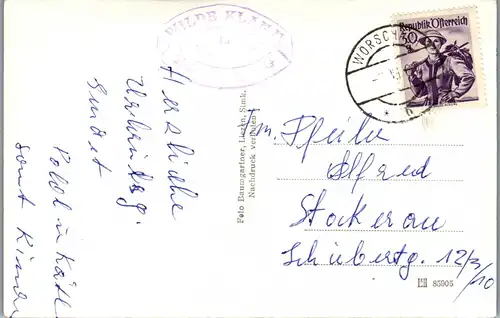 WILDE KLAMM
Herzliche
Urlaubsgr.
sendet
Poldi u. Käthe
samt Kinder
Foto Baumgartner, Liezen, Stmk.
Nachdruck verboten
Republik Österreich
30
g
WORSCH
Fm. Pfeifer
Alfred
Stockerau
Schubertg. 12/3/10
85905